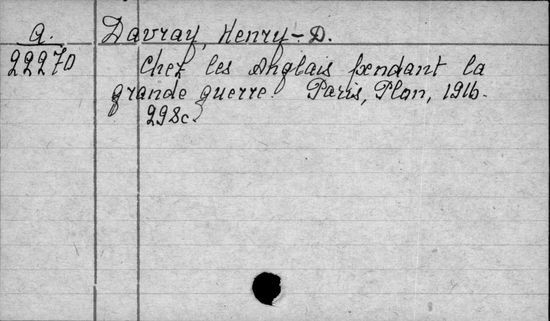 a. Davray, Henry-D.
22270 Chez les Anglais pendant la
grande guerre. Paris, Plon, 1916.
298c.